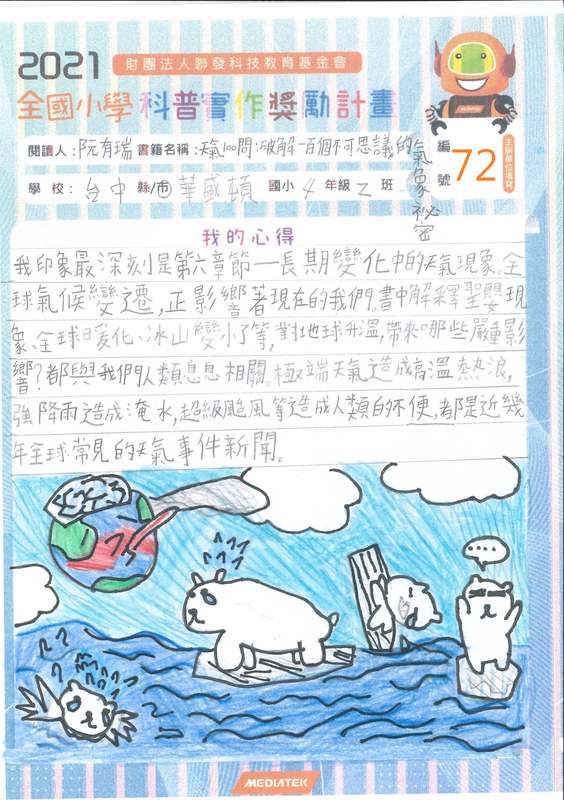 2021 財團法人聯發科技教育基金會
全國小學科普實作獎勵計畫
閱讀人：阮有瑞 書籍名稱：天氣100問：破解一百個不可思議的氣象祕密
學校：台中 縣/市 華盛頓 國小 4 年級 乙 班
編號 72 主辦單位填寫
我的心得
我印象最深刻是第六章節—長期變化中的天氣現象。全
球氣候變遷，正影響著現在的我們。書中解釋聖嬰現
象、全球暖化、冰山變小了等，對地球升溫，帶來哪些嚴重影
響？都與我們人類息息相關。極端天氣造成高溫熱浪，
強降雨造成淹水，超級颱風等造成人類的不便，都是近幾
年全球常見的天氣事件新聞。
....
MEDIATEK